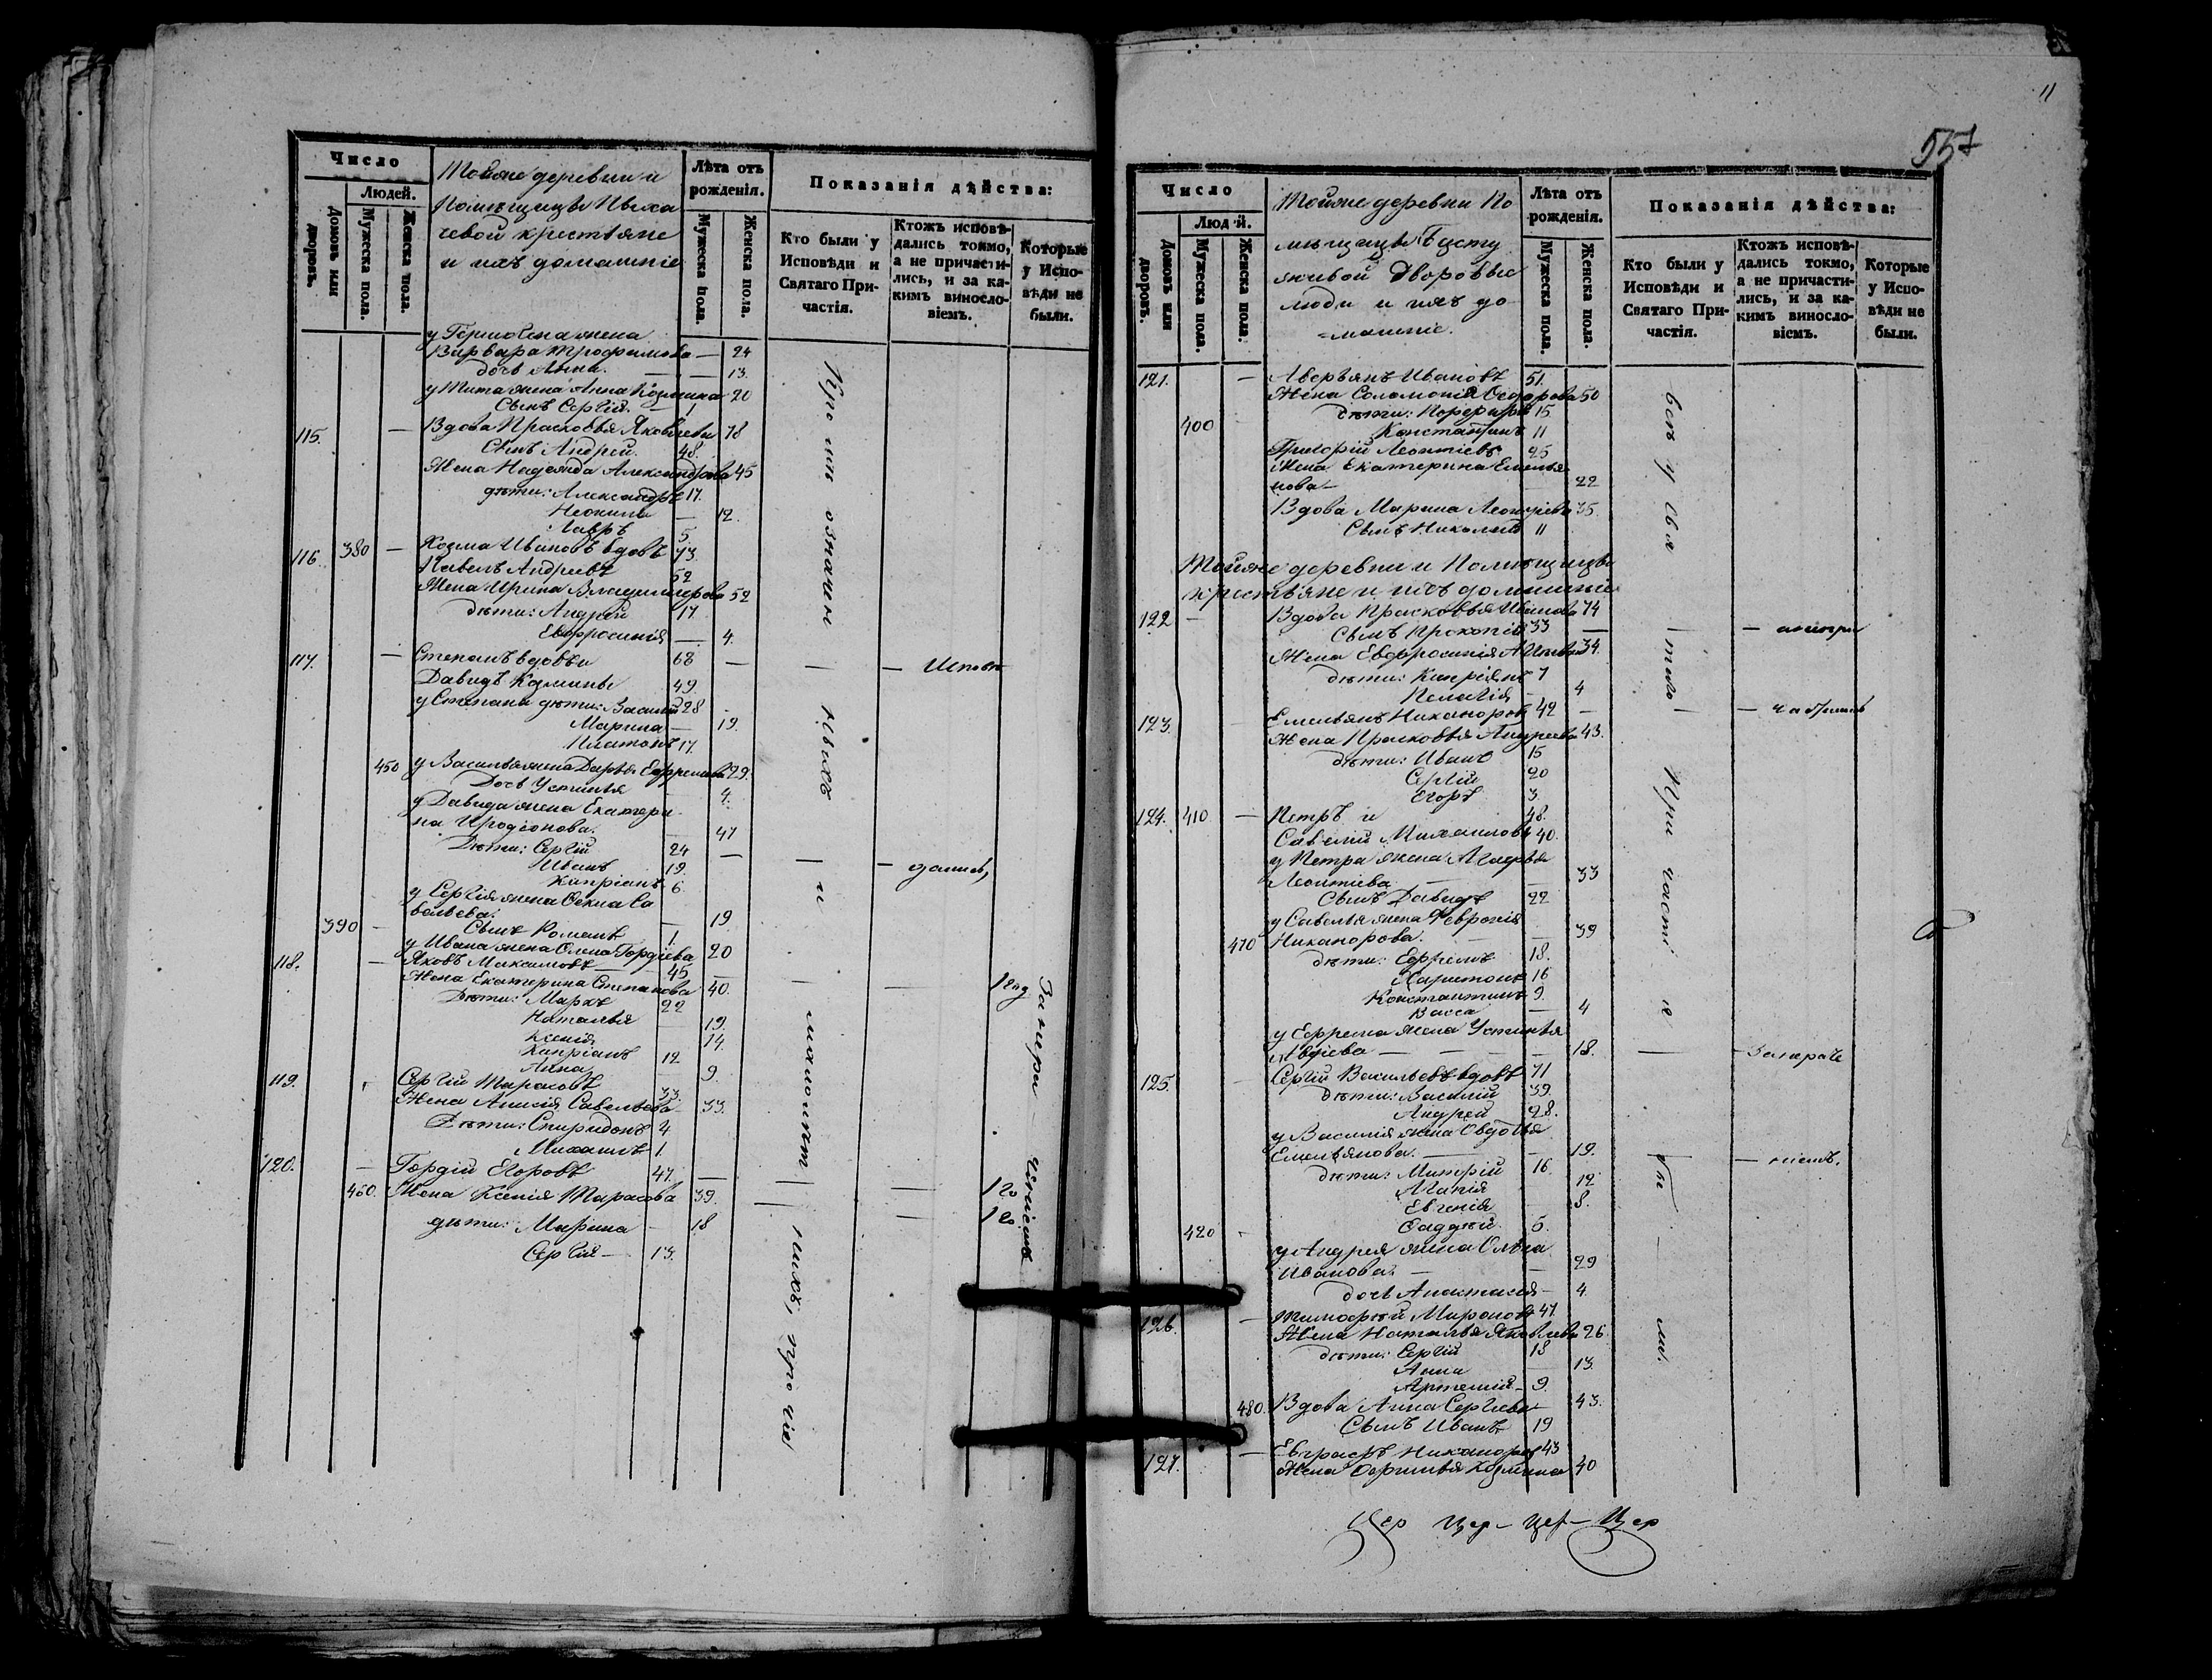 Число
Людей.
Домовъ или дворовъ.
Мужеска пола.
Женска пола.
Тойже деревни и
Помѣщицы
чевой крестьяне
и ихъ домашніе
Лѣта отъ рожденія.
Мужеска пола.
Женска пола.
Показанія дѣйства:
Кто были у Исповѣди и Святаго Причастія.
Ктожъ исповѣдались токмо, а не причастились, и за какимъ винословіемъ.
Которые у Исповѣди не были.
у жена
Варвара Трофимова — 24
дочь Анна. — — 13.
у Тита жена Анна Козмина 20
Сынъ Сергій. — 1
115. — Вдова Прасковья Яковлева 78
Сынъ Андрей. 48.
Жена Надежда Александрова 45
дѣти: Александръ 17.
Неонила — 12.
Лавръ 5
116. 380 — Козма Ивановъ вдовъ 73.
Павелъ Андреевъ 52
Жена Ирина Владимирова 52
дѣти: Андрей 17
Евфросинія — 4.
117. — Степанъ вдовъ и 68 — — — Исповѣ
Давидъ Козмины 49
у Степана дѣти: Василій 28
Марина — 19.
Платонъ 17.
450 у Василья жена Дарья Ефремова 29.
Дочь Устинья 4.
у Давида жена Екатери
на Иродіонова. — 47
Дѣти: Сергій 24 — — — дались,
Иванъ 19.
Кипріанъ 6.
у Сергія жена Фекла Са
вельева. — 19
390 — Сынъ Романъ 1.
у Ивана жена Олена Гордіева 20
118. — Яковъ Максимовъ 45 —
Жена Екатерина Степанова 40. — — 1 год
Дѣти: Маркъ 22
Наталья — 19.
Ксенія 14.
Кипріанъ 12
Анна 9.
119. Сергій Тарасовъ 33.
Жена Анисія Савельева 33.
Дѣти: Спиридонъ 4
Михаилъ 1.
120. — Гордій Егоровъ 47. — — — 1 го
460. Жена Ксенія Тарасова 39. — — 1 го
дѣти: Марина — 18
Сергій — 13.
Кро мѣ означен ныхъ и малолѣт нихъ, про чіе
За нера — чѣніемъ
11
557
Число
Людей.
Домовъ или дворовъ.
Мужеска пола.
Женска пола.
Тойже деревни По
мѣщицы Бесту
жевой Дворовые
люди и ихъ до
=машніе.
Лѣта отъ рожденія.
Мужеска пола.
Женска пола.
Показанія дѣйства:
Кто были у Исповѣди и Святаго Причастія.
Ктожъ исповѣдались токмо, а не причастились, и за какимъ винословіемъ.
Которые у Исповѣди не были.
121. — Аверьянъ Ивановъ 51.
Жена Соломонія Федорова 50
дѣти: Порфирій 15
400 Константинъ 11
Григорій Леонтіевъ 25
Жена Екатерина Емелья
нова — 22
Вдова Марина 35.
Сынъ Николай 11
Тойже деревни и Помѣщицы
крестьяне и ихъ домашніе
122 — Вдова Прасковья Иванова 74
Сынъ Прокопій 33 —
Жена Евфросинія 34.
дѣти: Кипріянъ 7
Пелагія — 4
123. — Емельянъ Никаноровъ 42 —
Жена Прасковья Андреева 43.
дѣти: Иванъ 15
Сергій 20
Егоръ 3
124. 410 — Петръ и 48.
Савелій Михаиловы 40.
у Петра жена Агафья
Леонтіева — 33
Сынъ Давидъ 22
у Савелья жена Февронія
470 Никанорова. — — 39
дѣти: Ефремъ 18.
Харитонъ 16
Константинъ 9.
Васса — 4
у Ефрема жена Устинья
Авдіева — — — — 18. — — За нераче
125. — Сергій Васильевъ вдовъ 71
дѣти: Василій 39.
Андрей 28.
у Василія жена Овдотья
Емельянова. — — 19. — — ніемъ.
дѣти: Митрій 16.
Агапія 12
Евгенія 8.
420 Фаддей 5.
у Андрея жена Олена
Иванова. — — 29
дочь Анастасія — 4
126. — Тимофей Мироновъ 47
Жена Наталья Яковлева 26
дѣти: Сергій 18
Анна — 13.
Артемій — 9.
480. Вдова Анна Сергіева 43.
Сынъ Иванъ 19
127. — Евграфъ Никаноровъ 43
Жена Козмина 40
всѣ у Свя таго При части я бы — ли.
Цер Цер — Цер — Цер